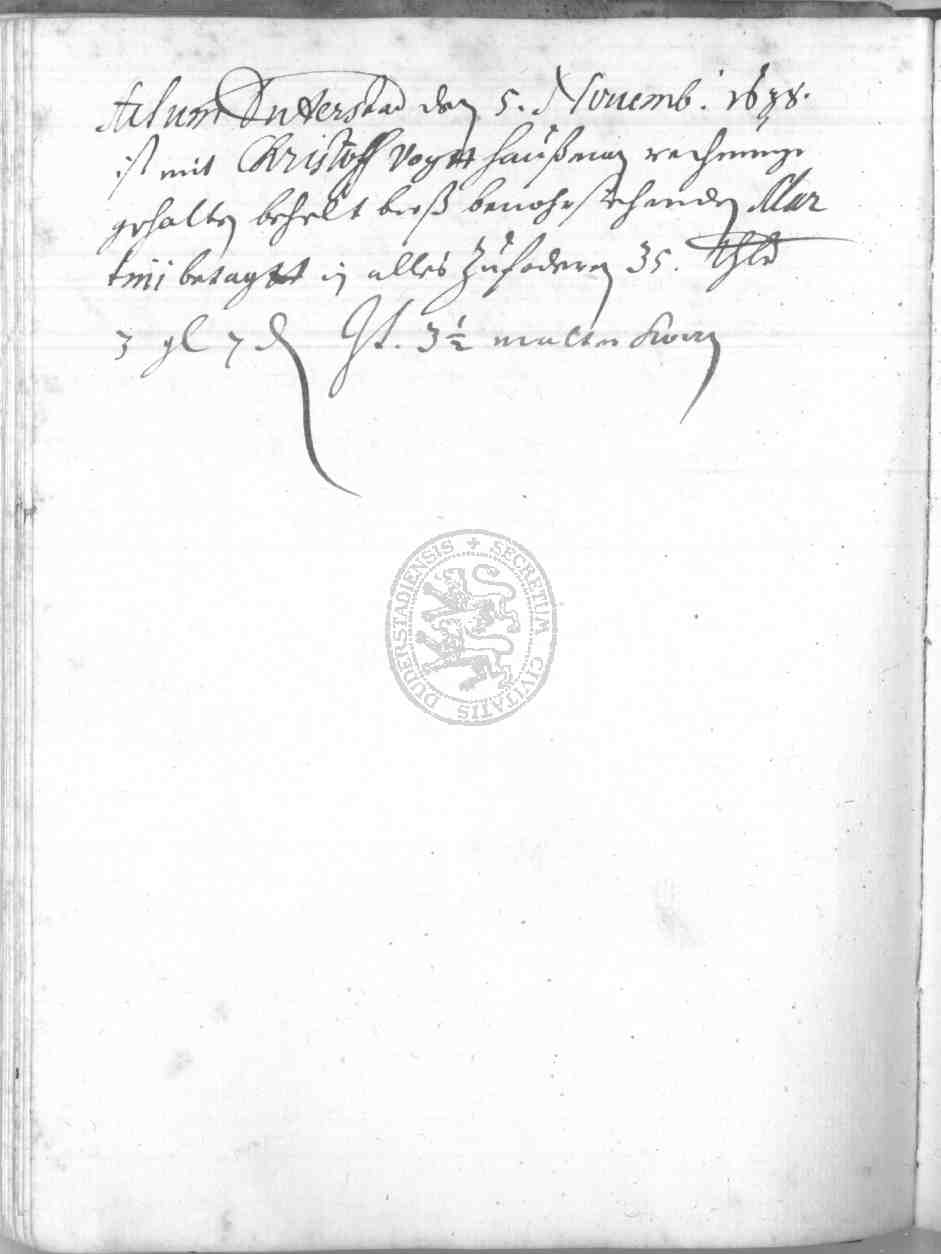 Actum Duderstad den 5. Nouemb. 1638.
ist mit Christoff Vogtt haußman rechnunge
gehalten behelt biß beuohrstehenden Mar
tinj betagtt in alles zufoderen 35. thlr
3 gl 7 d It. 3½ malter Korn
DUDERSTADIENSIS + SECRETUM CIVITATIS